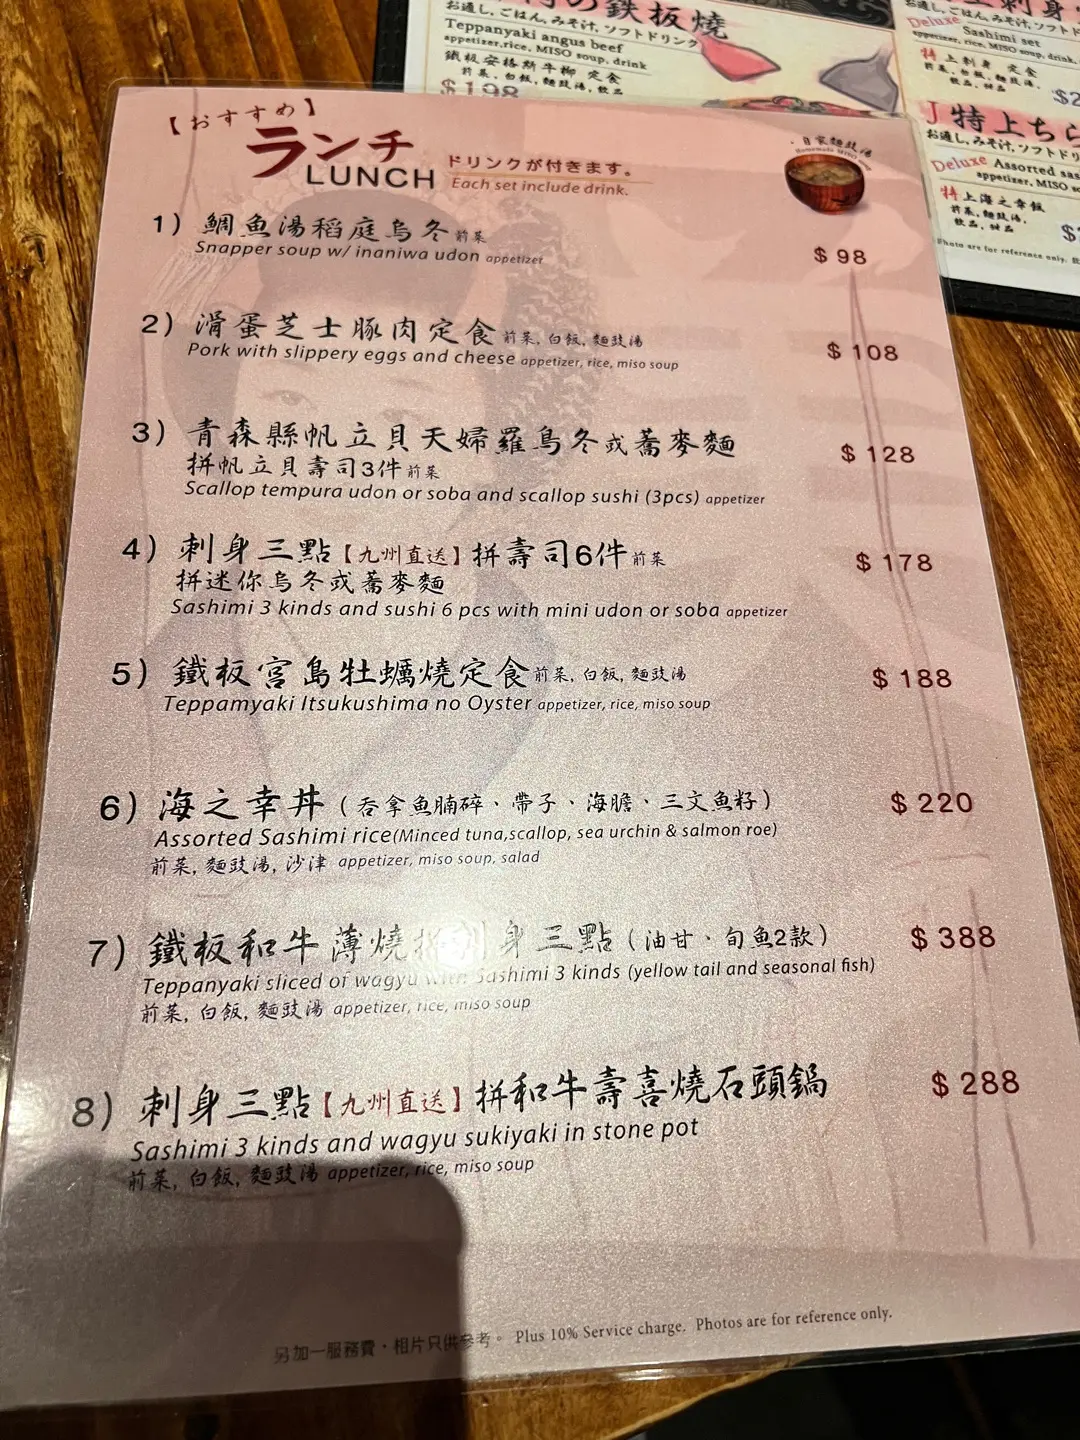 の鉄板燒
お通し、ごはん、みそ汁、ソフトドリンク
Teppanyaki angus beef
appetizer, rice, MISO soup, drink
鐵板安格斯牛柳 定食
前菜, 白飯, 麵豉湯, 飲品
$198
上刺身
お通し、ごはん、みそ汁、ソフト
Deluxe
Sashimi set
appetizer, rice, MISO soup, drink
特上刺身 定食
前菜, 白飯, 麵豉湯,
飲品, 甜品
$2
J 特上ちら
お通し、みそ汁、ソフトドリ
Deluxe Assorted sas
appetizer, MISO so
特上海之幸飯
前菜, 麵豉湯,
飲品, 甜品
$
Photo are for reference only.
【おすすめ】
ランチ
LUNCH
ドリンクが付きます。
Each set include drink.
自家麵豉湯
Homemade MISO
1) 鯛魚湯稻庭烏冬 前菜
Snapper soup w/ inaniwa udon appetizer
$ 98
2) 滑蛋芝士豚肉定食 前菜, 白飯, 麵豉湯
Pork with slippery eggs and cheese appetizer, rice, miso soup
$ 108
3) 青森縣帆立貝天婦羅烏冬或蕎麥麵
拼帆立貝壽司3件 前菜
Scallop tempura udon or soba and scallop sushi (3pcs) appetizer
$ 128
4) 刺身三點【九州直送】拼壽司6件 前菜
拼迷你烏冬或蕎麥麵
Sashimi 3 kinds and sushi 6 pcs with mini udon or soba appetizer
$ 178
5) 鐵板宮島牡蠣燒定食 前菜, 白飯, 麵豉湯
Teppamyaki Itsukushima no Oyster appetizer, rice, miso soup
$ 188
6) 海之幸丼 (吞拿魚腩碎、帶子、海膽、三文魚籽)
Assorted Sashimi rice(Minced tuna,scallop, sea urchin & salmon roe)
前菜, 麵豉湯, 沙津 appetizer, miso soup, salad
$ 220
7) 鐵板和牛薄燒拼刺身三點 (油甘、旬魚2款)
Teppanyaki sliced of wagyu with Sashimi 3 kinds (yellow tail and seasonal fish)
前菜, 白飯, 麵豉湯 appetizer, rice, miso soup
$ 388
8) 刺身三點【九州直送】拼和牛壽喜燒石頭鍋
Sashimi 3 kinds and wagyu sukiyaki in stone pot
前菜, 白飯, 麵豉湯 appetizer, rice, miso soup
$ 288
另加一服務費・相片只供參考。 Plus 10% Service charge. Photos are for reference only.